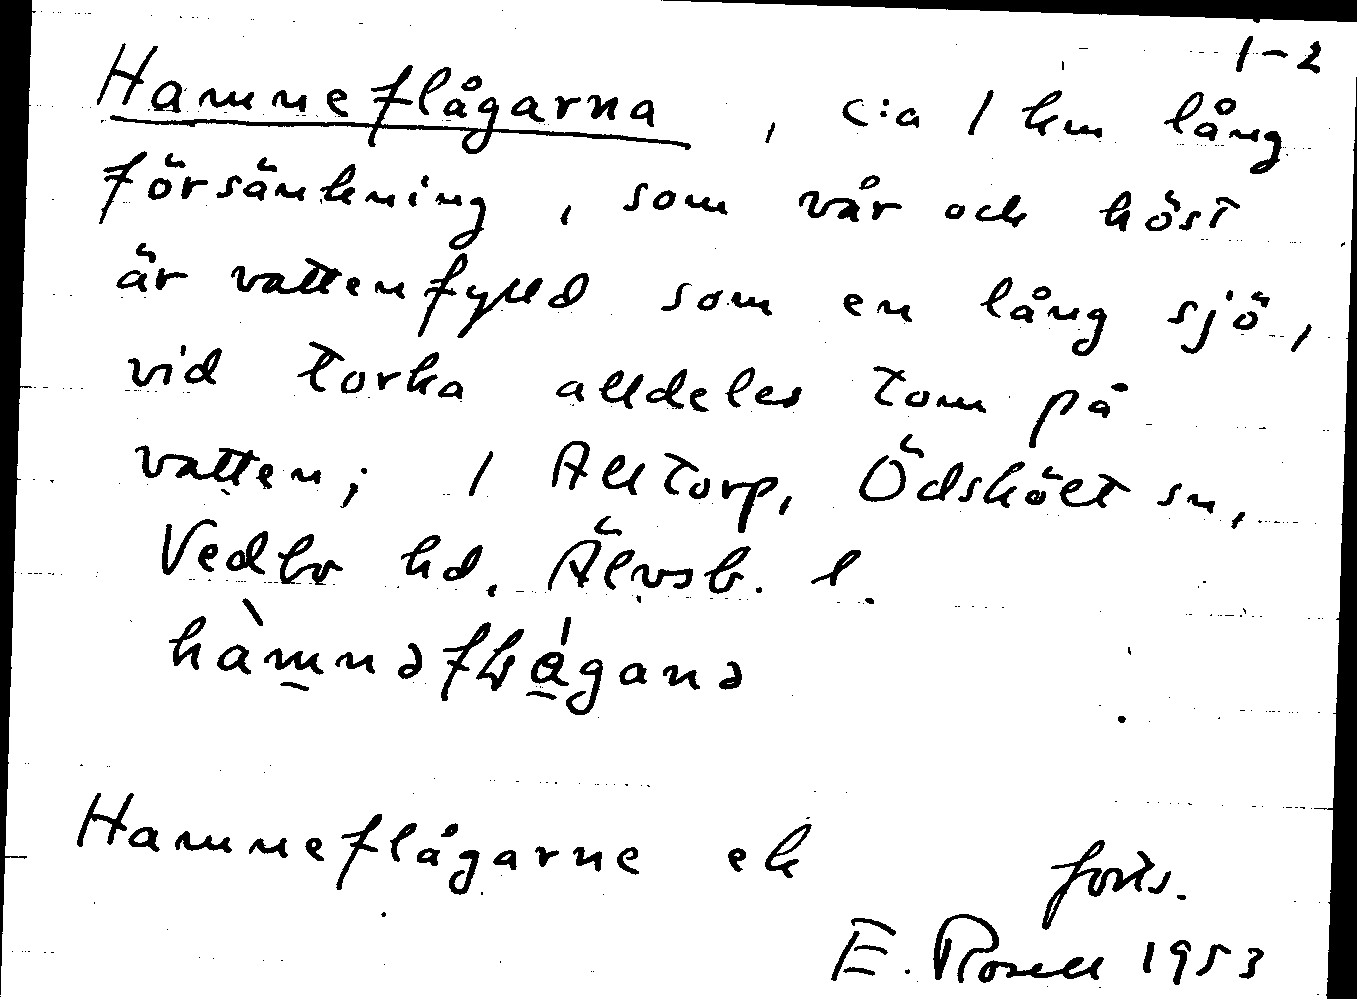 1-2
Hamneflågarna, c:a 1 km lång
försänkning, som vår och höst
är vattenfylld som en lång sjö,
vid torka alldeles tom på
vatten; / Alltorp, Ödskölt sn,
Vedbo hd. Älvsb. l.
Hamneflågarne ek
forts.
E. Rosell 1953